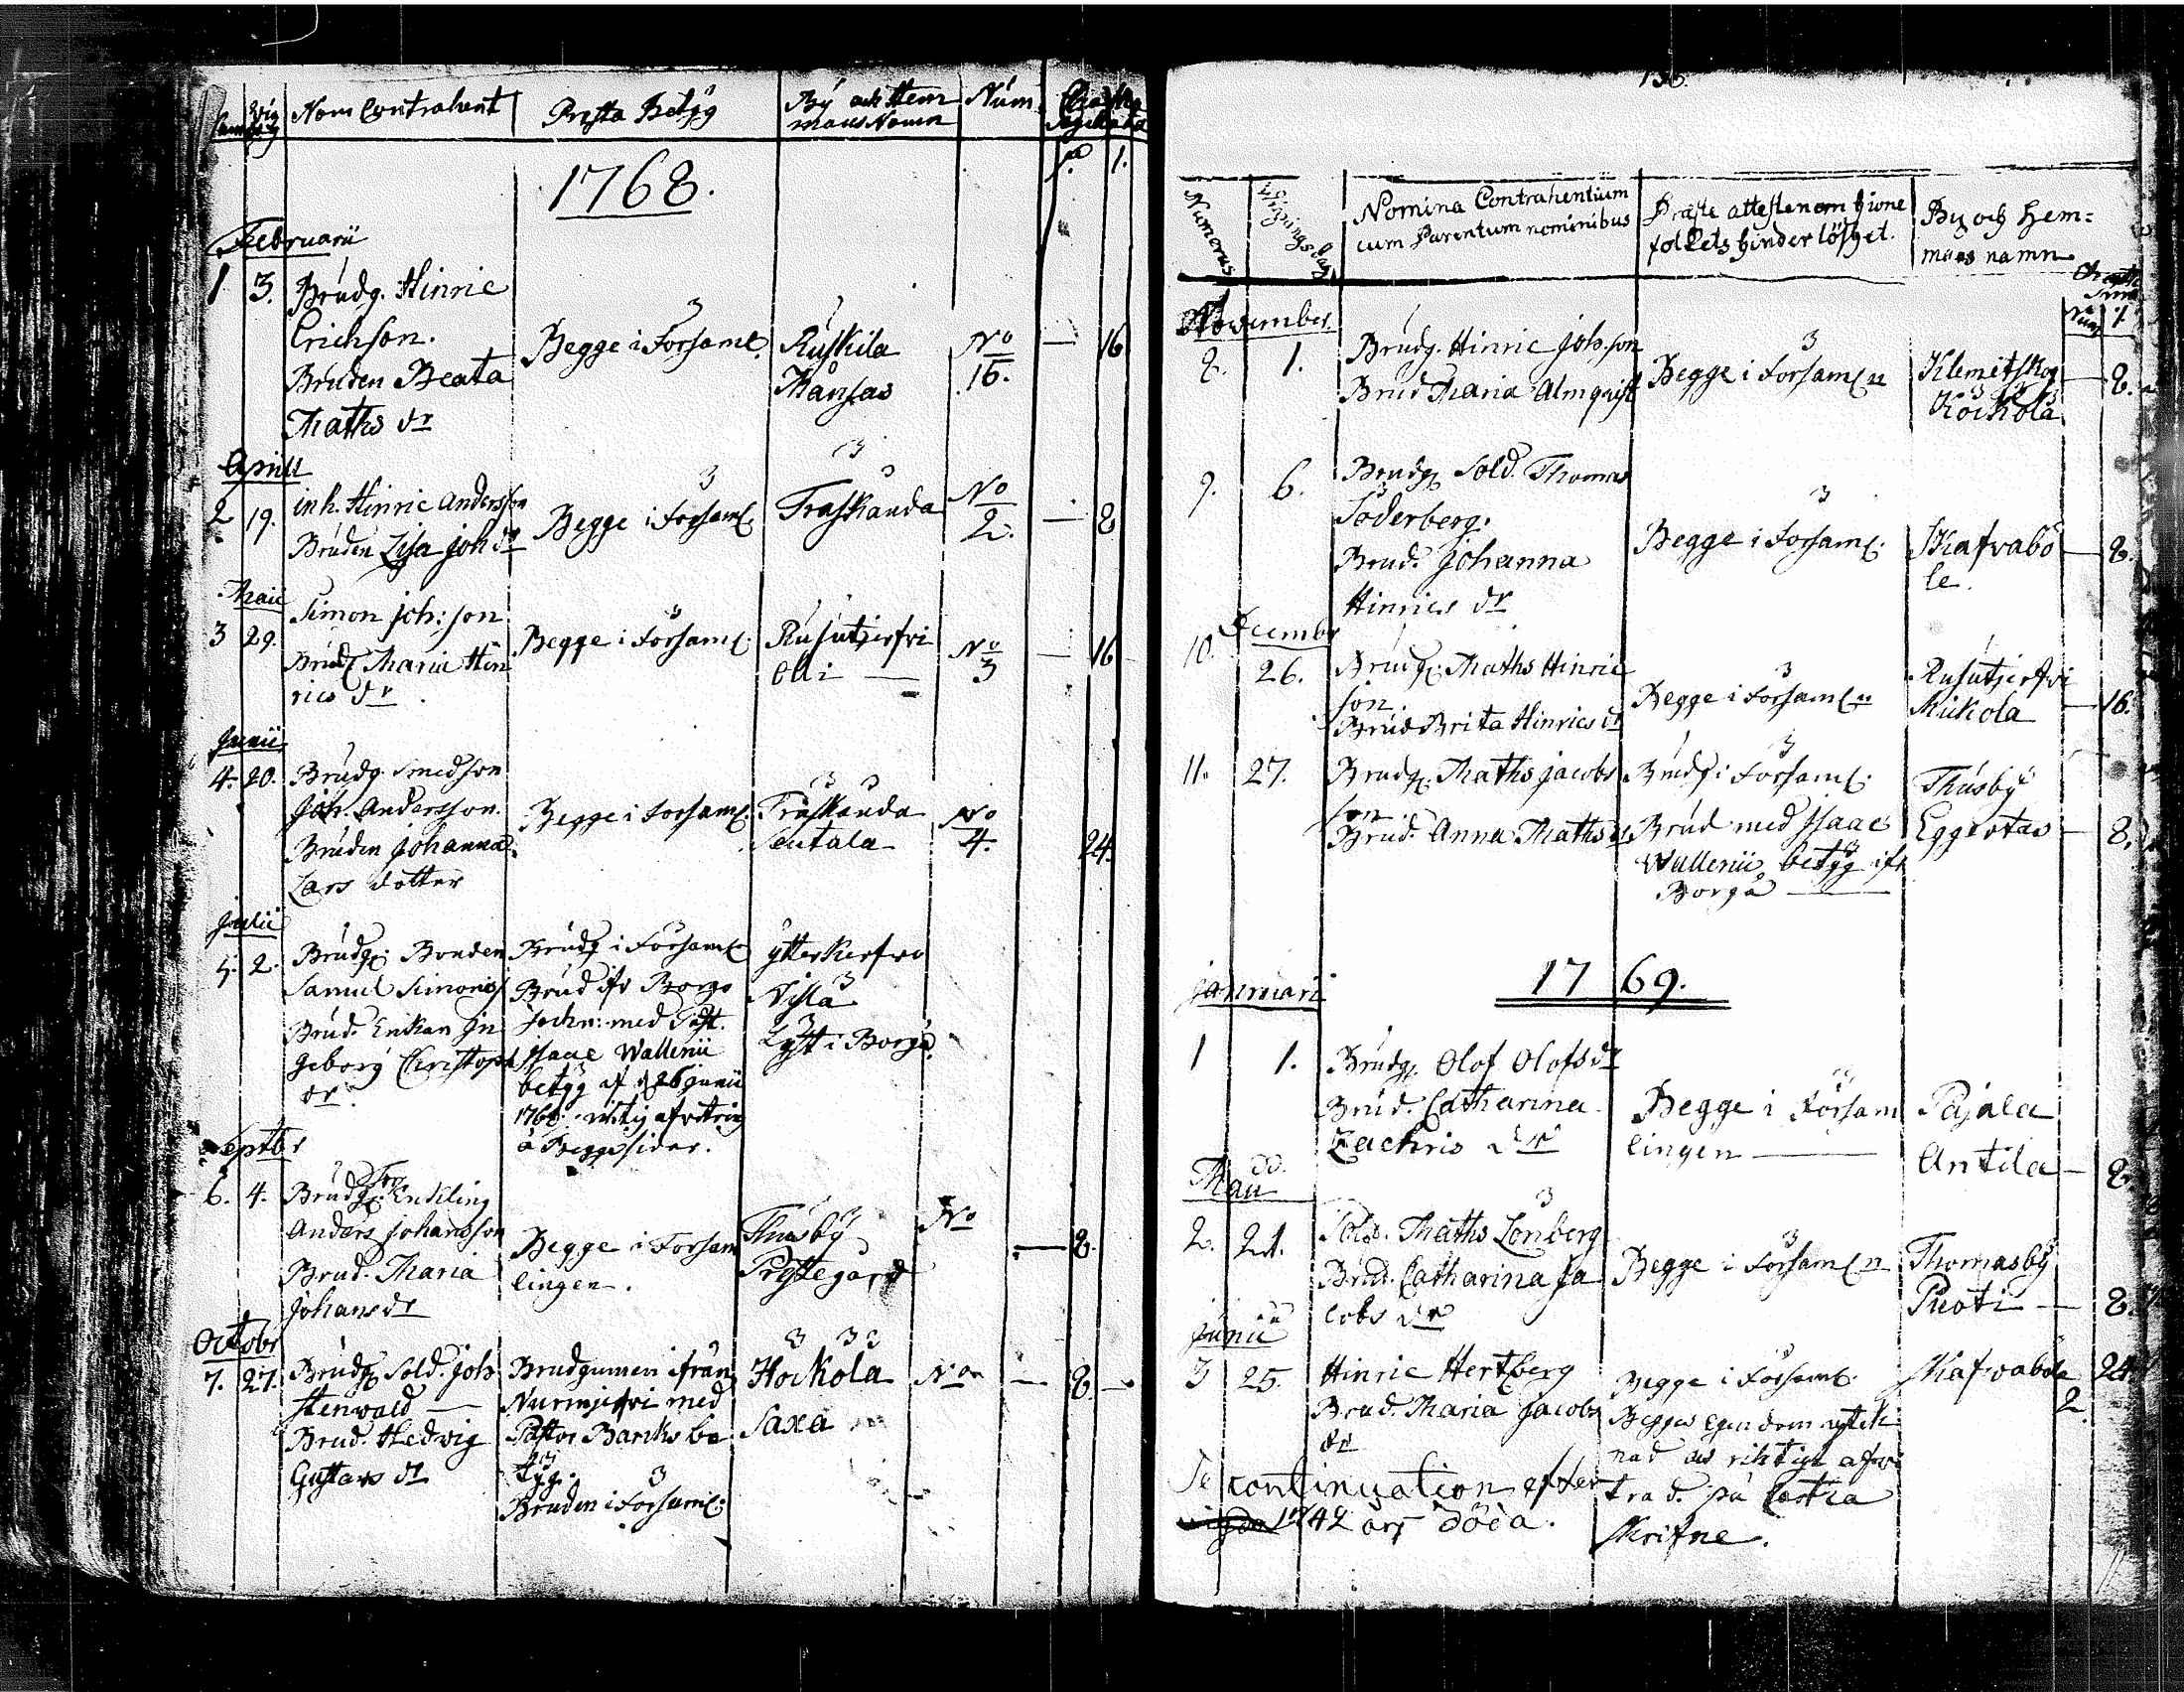 Wig
Nom Contrahent
Presta Betyg
By och Hem
mans Namn
Num
1768.
Februarii
1 3. Brudg. Hinric
Erichson.
Bruden Beata
Maths dr
Begge i Forsaml.
Ruskila
Månsas
No
16.
— 16
Aprill
2 19. inh. Hinric Andersson
Bruden Lisa Joh dr
Begge i Forsaml.
Traskanda
No
2.
— 8
Maii
3 29. Simon Joh: son
Brud. Maria Hin
rics dr.
Begge i Forsaml.
Rusutjerfvi
Olli —
No
3
— 16
Junii
4. 20. Brudg. Smedson
Joh. Andersson.
Bruden Johanna
Lars dotter
Begge i Forsaml.
Träskanda
Seutala
No
4.
24.
Julii
5. 2. Brudg. Bonden
Samuel Simonis
Brud. Enkan In
geborg Christoph
dr.
Brudg i Församl
Brud ifr Borgo
Sochn: med Past.
Isaac Wallenii
betyg af d 26 Junii
1768.
å Begge sidor.
Ytterkerfvo
Nisla
i Borgå.
Septbr
6. 4. Brudg. Enkling
Anders Johansson
Brud. Maria
Johans dr
Begge i Forsam
lingen.
Thusby
Prestegård
No
— 8.
Octobr
7. 27. Brudg. Sold. Joh
Stenwald —
Brud. Hedwig
Gustavs dr
Brudgumen ifrån
Nurmijerfvi med
Pastor Banks be
tyg.
Bruden i Forsaml:
Hockola
Saxa
No
— 8. —
136.
Numerus
Wignings dag
Nomina Contrahentium
cum Parentum nominibus
Präste attesten om hione
folkets hinderlöshet.
By och hem=
mans namn
November
8. 1. Brudg. Hinric Joh.son
Brud Maria Almqvist
Begge i Forsaml n
Klemetskog
Kockola
— 8.
9. 6. Brudg. Sold. Thomas
Söderberg.
Brud. Johanna
Hinrics dr
Begge i Forsaml.
Skafvabö
le.
— 8.
Decembr
10. 26. Brudg. Maths Hinric
son.
Brud Brita Hinrics dr
Begge i Forsaml n
Rusutjerfvi
Mickola
— 16.
11. 27. Brudg. Maths Jacobs
son
Brud. Anna Maths dr
Brudg i Församl.
Brud med Isaac
Wallenii betyg ifr
Borgå —
Thusby
Eggertas
— 8.
1769.
Januarii
1 1. Brudg. Olof Olofs dr
Brud. Catharina
Zachris dr
Begge i Försam
lingen —
Pajala
Antila
— 8.
Maii
2. 21. Sold. Maths Lönberg
Brud. Catharina Ja
cobs dr
Begge i Församl n
Thomasby
Puoti —
8.
Junii
3 25. Hinric Hertzberg
Brud. Maria Jacobs
dr
Begge i Församl.
Begges egendom
nad
trad. på
skrifne.
Skafvaböle
24.
2.
Se continuation efter
1742 års döda.